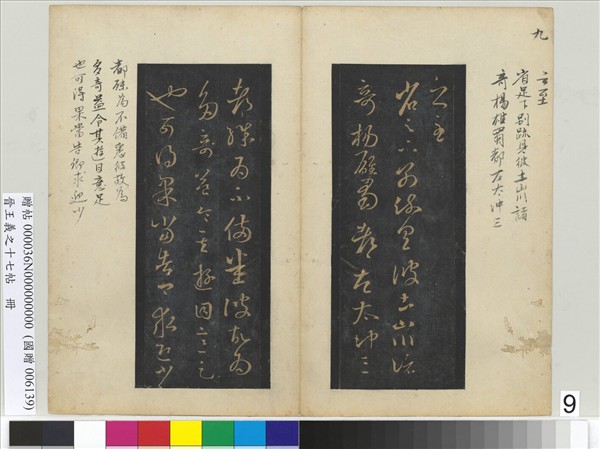 九
言至
省足下別疏具彼土山川諸
奇楊雄蜀都左太冲三
言至
省足下別疏具彼土山川諸
奇揚雄蜀都左太冲三
都殊為不備悉彼故為
多奇益令其遊目意足
也可得果當告卿求迎少
都殊為不備悉彼故為
多奇益令其遊目意足
也可得果當告卿求迎少
贈帖 000036N000000000 (國贈 006139)
晉王羲之十七帖 冊
9